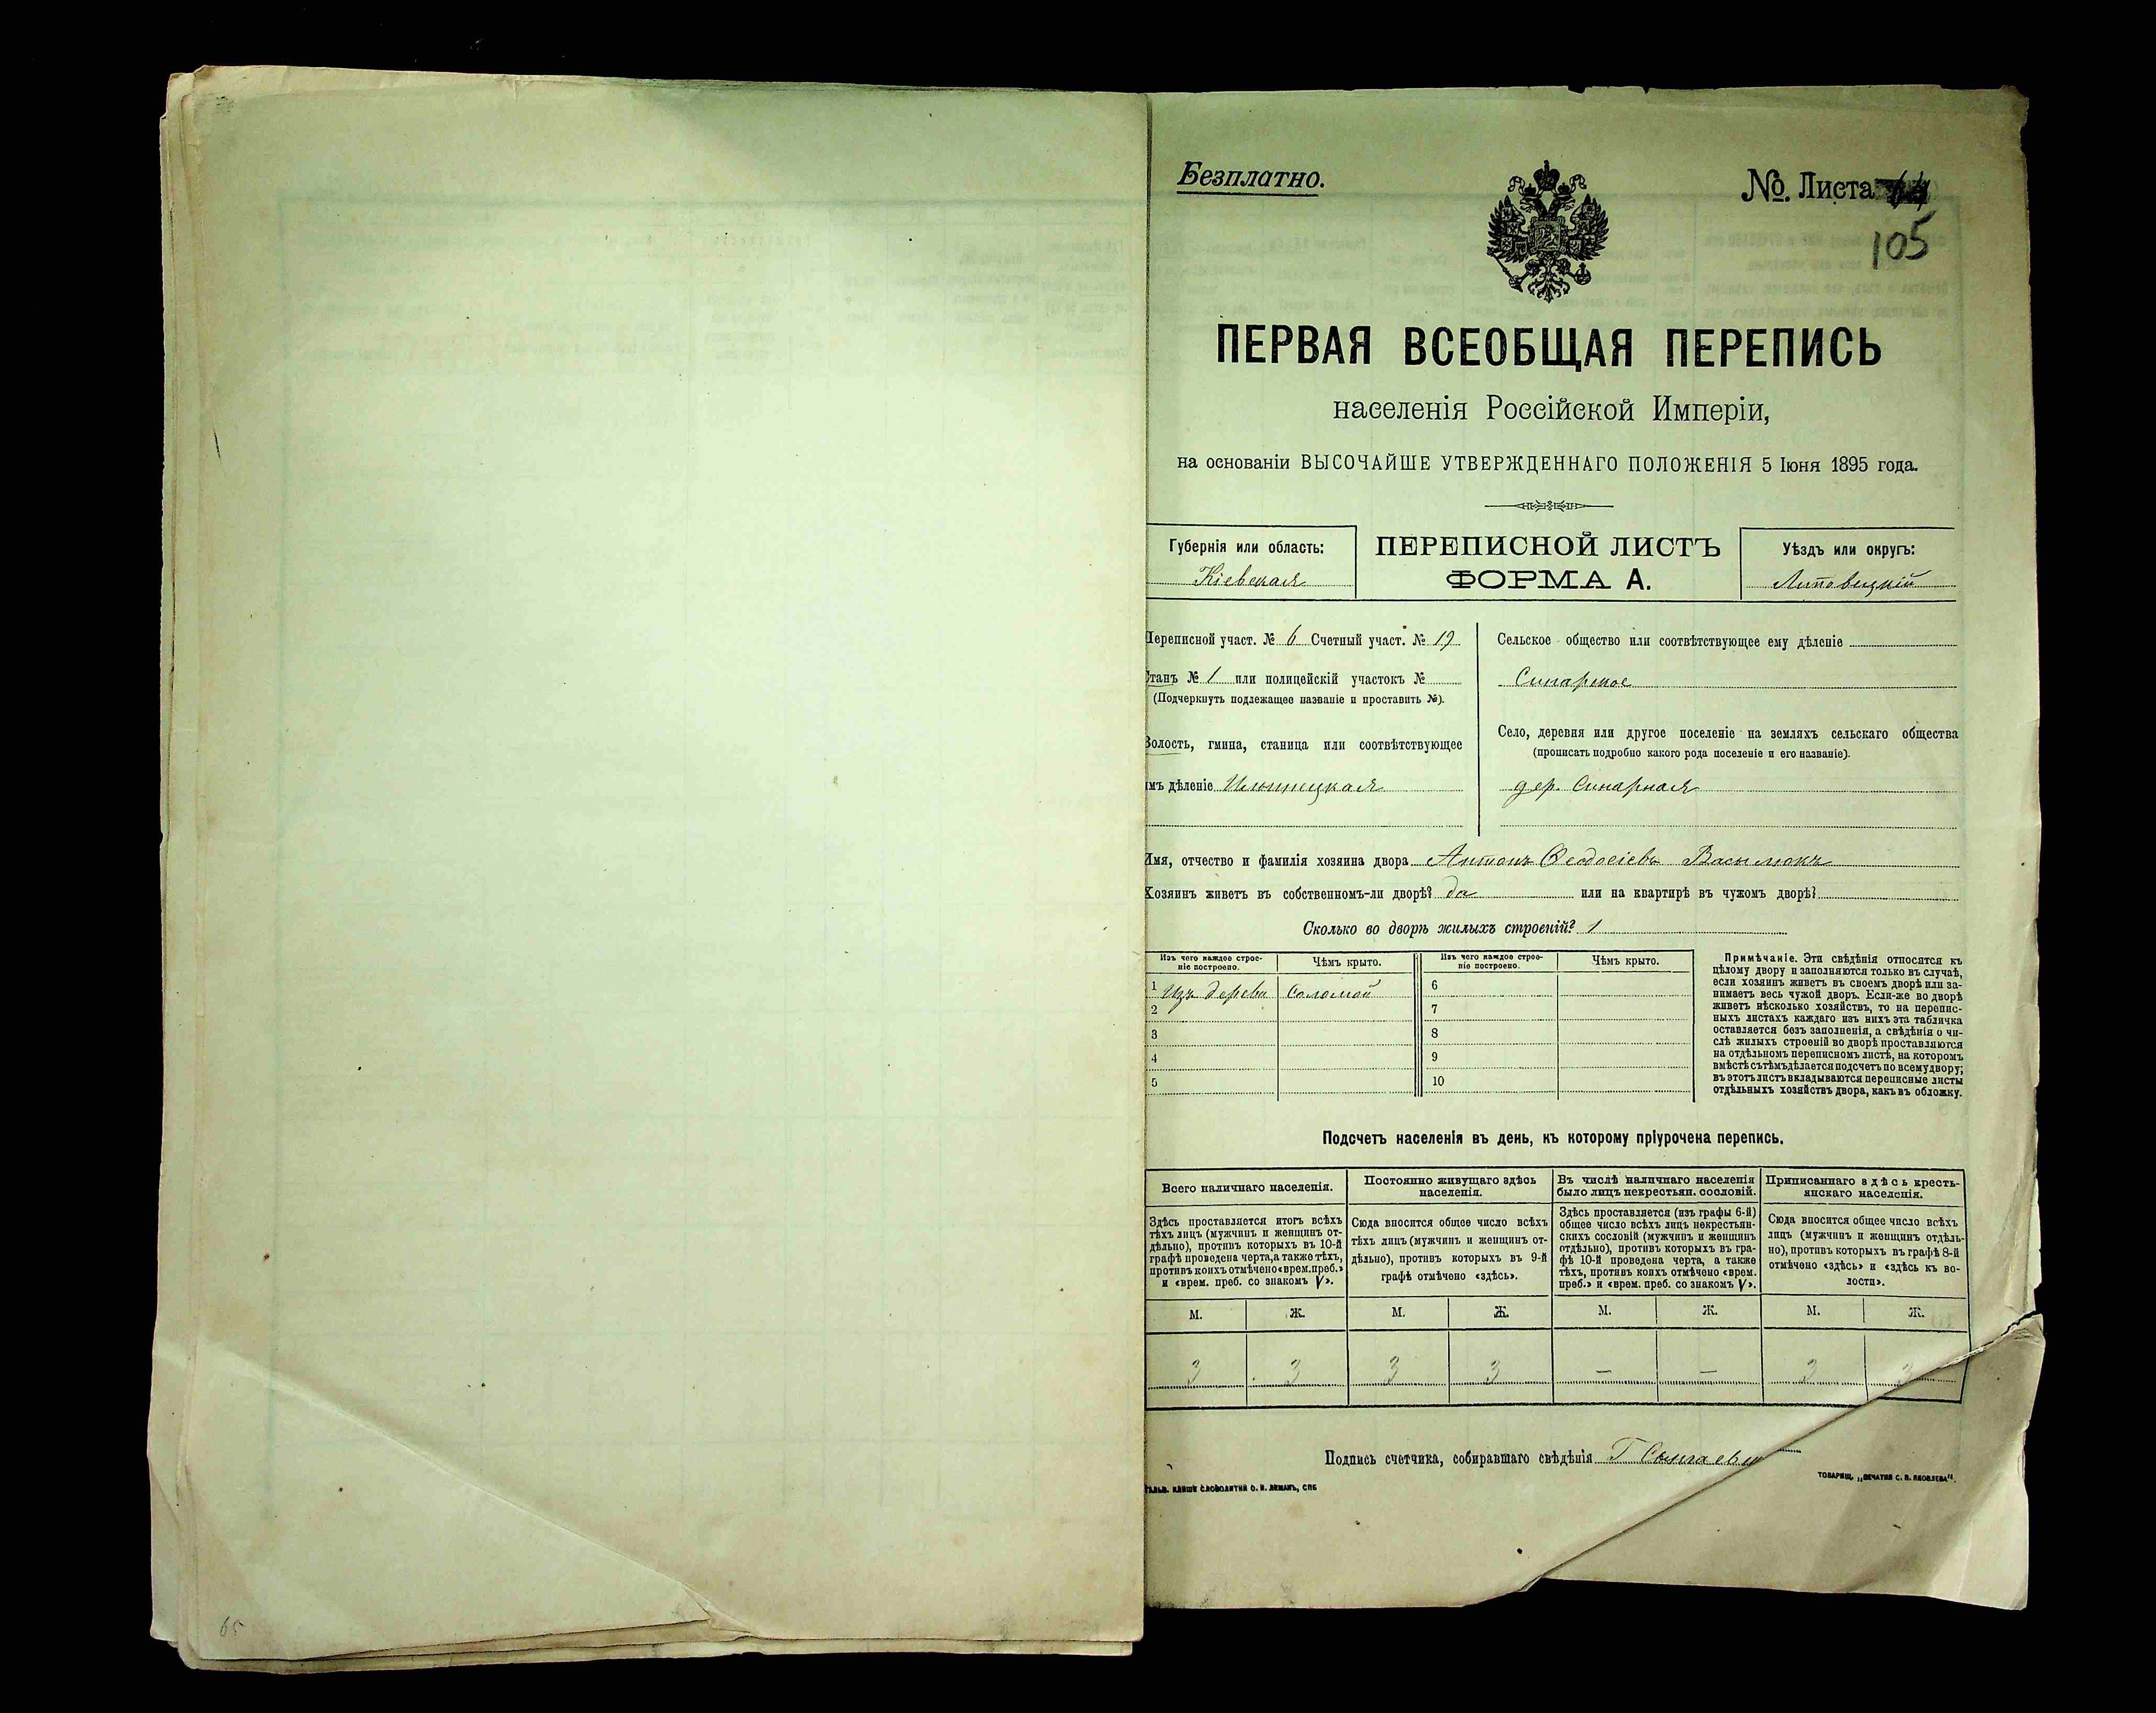 Безплатно.
№ Листа
105
ПЕРВАЯ ВСЕОБЩАЯ ПЕРЕПИСЬ
населенія Россійской Имперіи,
на основаніи ВЫСОЧАЙШЕ УТВЕРЖДЕННАГО ПОЛОЖЕНІЯ 5 Іюня 1895 года.
Губернія или область:
Кіевская
ПЕРЕПИСНОЙ ЛИСТЪ
ФОРМА А.
Уѣздъ или округъ:
Липовецкій
Переписной участ. № 6 Счетный участ. № 19
Станъ № 1 или полицейскій участокъ №
(Подчеркнуть подлежащее названіе и проставить №).
Волость, гмина, станица или соотвѣтствующее
имъ дѣленіе Ильинецкая
Сельское общество или соотвѣтствующее ему дѣленіе
Синарное
Село, деревня или другое поселеніе на земляхъ сельскаго общества
(прописать подробно какого рода поселеніе и его названіе).
дер. Синарная
Имя, отчество и фамилія хозяина двора Антонъ Ѳеодосіевъ Васылюкъ
Хозяинъ живетъ въ собственномъ-ли дворѣ? да или на квартирѣ въ чужомъ дворѣ?
Сколько во дворѣ жилыхъ строеній? 1
Изъ чего каждое строе-
ніе построено.
Чѣмъ крыто.
Изъ чего каждое строе-
ніе построено.
Чѣмъ крыто.
1 Изъ дерева Соломой
2
3
4
5
6
7
8
9
10
Примѣчаніе. Эти свѣдѣнія относятся къ
цѣлому двору и заполняются только въ случаѣ,
если хозяинъ живетъ въ своемъ дворѣ или за-
нимаетъ весь чужой дворъ. Если-же во дворѣ
живетъ нѣсколько хозяйствъ, то на перепис-
ныхъ листахъ каждаго изъ нихъ эта табличка
оставляется безъ заполненія, а свѣдѣнія о чи-
слѣ жилыхъ строеній во дворѣ проставляются
на отдѣльномъ переписномъ листѣ, на которомъ
вмѣстѣ съ тѣмъ дѣлается подсчетъ по всему двору;
въ этотъ листъ вкладываются переписные листы
отдѣльныхъ хозяйствъ двора, какъ въ обложку.
Подсчетъ населенія въ день, къ которому пріурочена перепись.
Всего наличнаго населенія.
Здѣсь проставляется итогъ всѣхъ
тѣхъ лицъ (мужчинъ и женщинъ от-
дѣльно), противъ которыхъ въ 10-й
графѣ проведена черта, а также тѣхъ,
противъ коихъ отмѣчено «врем. преб.»
и «врем. преб. со знакомъ V».
Постоянно живущаго здѣсь
населенія.
Сюда вносится общее число всѣхъ
тѣхъ лицъ (мужчинъ и женщинъ от-
дѣльно), противъ которыхъ въ 9-й
графѣ отмѣчено «здѣсь».
Въ числѣ наличнаго населенія
было лицъ некрестьян. сословій.
Здѣсь проставляется (изъ графы 6-й)
общее число всѣхъ лицъ некрестьян-
скихъ сословій (мужчинъ и женщинъ
отдѣльно), противъ которыхъ въ гра-
фѣ 10-й проведена черта, а также
тѣхъ, противъ коихъ отмѣчено «врем.
преб.» и «врем. преб. со знакомъ V».
Приписаннаго здѣсь кресть-
янскаго населенія.
Сюда вносится общее число всѣхъ
лицъ (мужчинъ и женщинъ отдѣль-
но), противъ которыхъ въ графѣ 8-й
отмѣчено «здѣсь» и «здѣсь къ во-
лости».
М. Ж. М. Ж. М. Ж. М. Ж.
3 3 3 3 — — 3 3
Подпись счетчика, собиравшаго свѣдѣнія
ГАЛЬВ. КЛИШЕ СЛОВОЛИТНИ О. И. ЛЕМАНЪ, СПБ
ТОВАРИЩ. „ПЕЧАТНЯ С. П. ЯКОВЛЕВА".
65